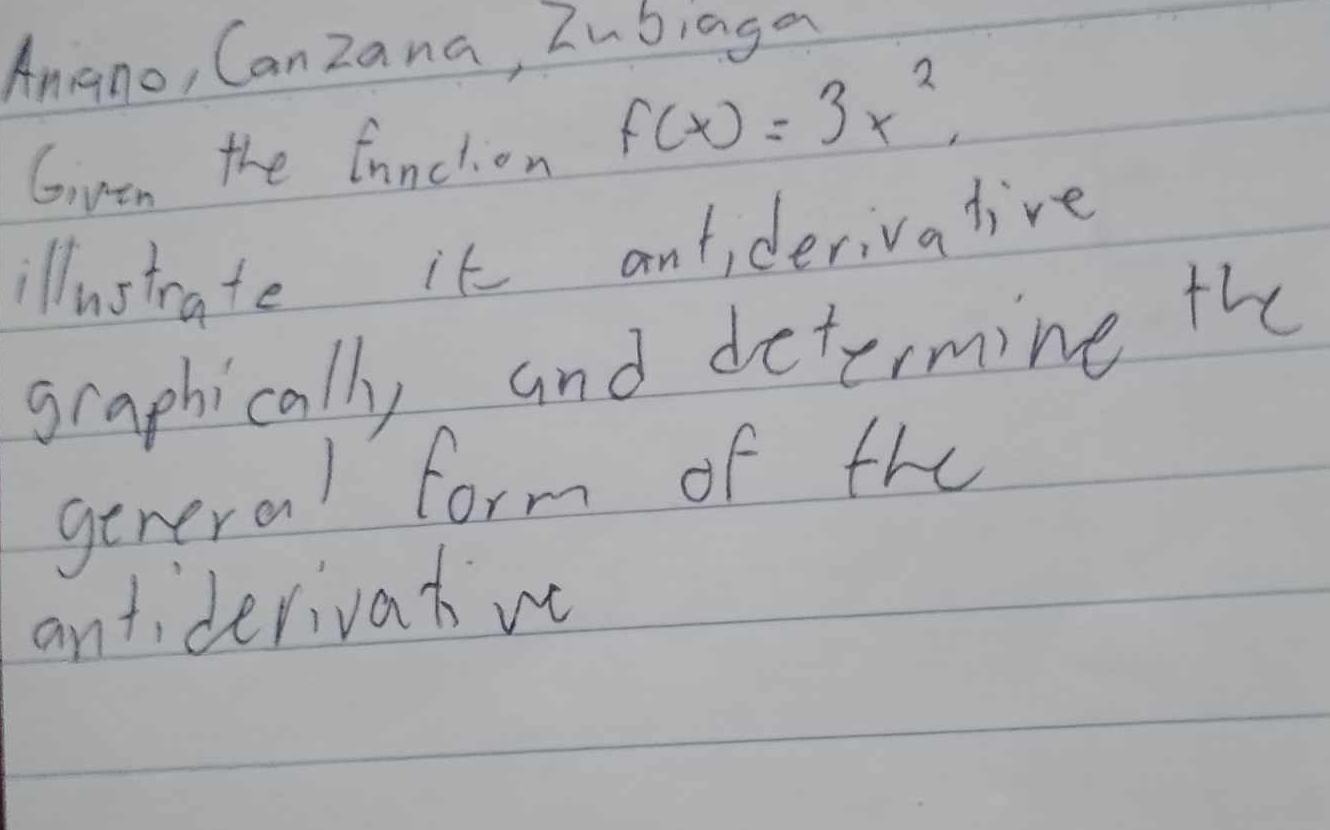 Aniano, Canzana, Zubiaga
Given the function f(x) = 3x².
illustrate it antiderivative
graphically and determine the
general form of the
antiderivative